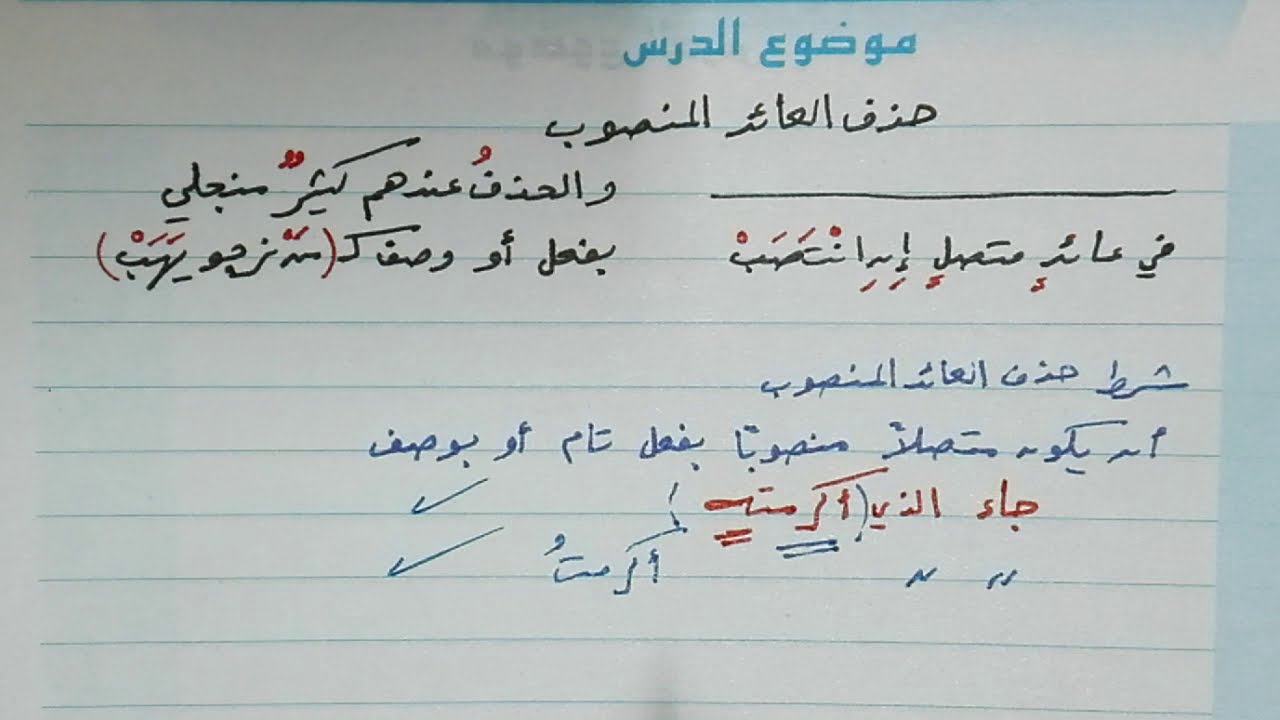 موضوع الدرس
حذف العائد المنصوب
والحذفُ عندهم كثيرٌ منجلي
في عائدٍ متصلٍ إِنِ انْتَصَبْ بفعل أو وصف كـ (مَنْ نرجو يَهَبْ)
شرط حذف العائد المنصوب
أن يكون متصلاً منصوبًا بفعل تام أو بوصف
جاء الذي (أكرمته) ✓
" " أكرمتُ ✓